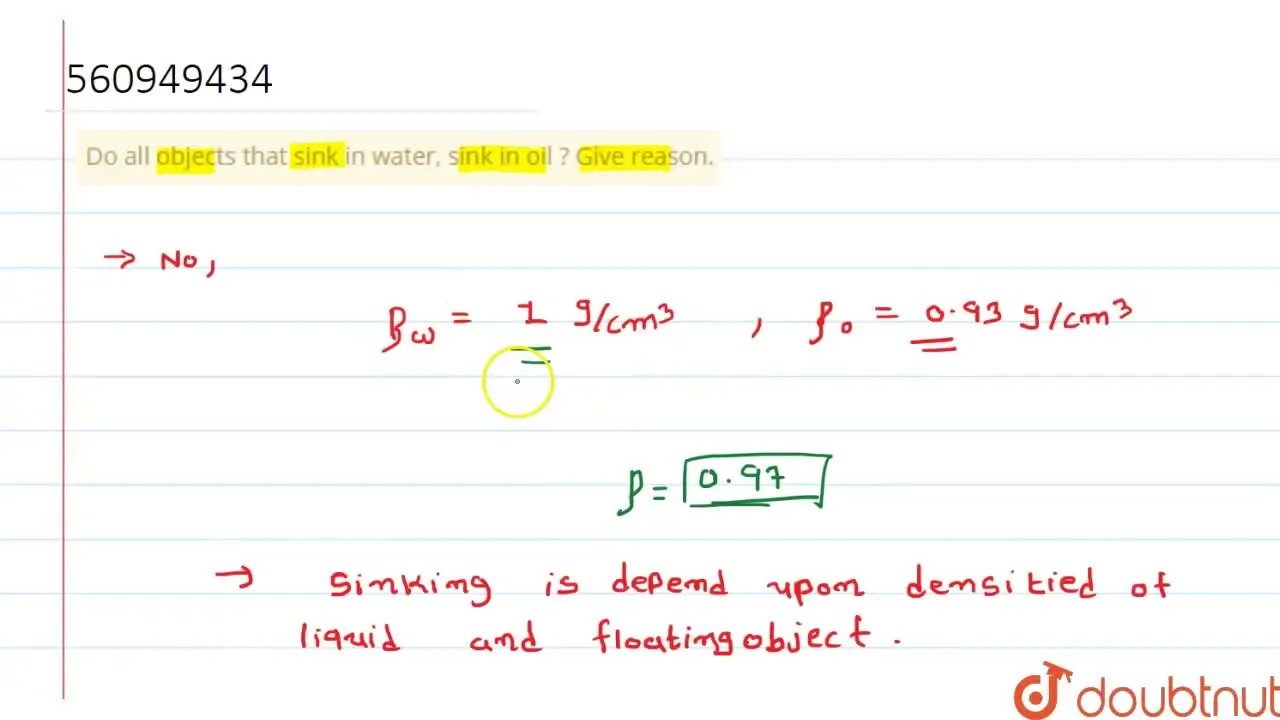 560949434
Do all objects that sink in water, sink in oil ? Give reason.
→ No,
ρw = 1 g/cm³ , ρo = 0.93 g/cm³
ρ = 0.97
→ Sinking is depend upon densitied of
liquid and floating object .
doubtnut